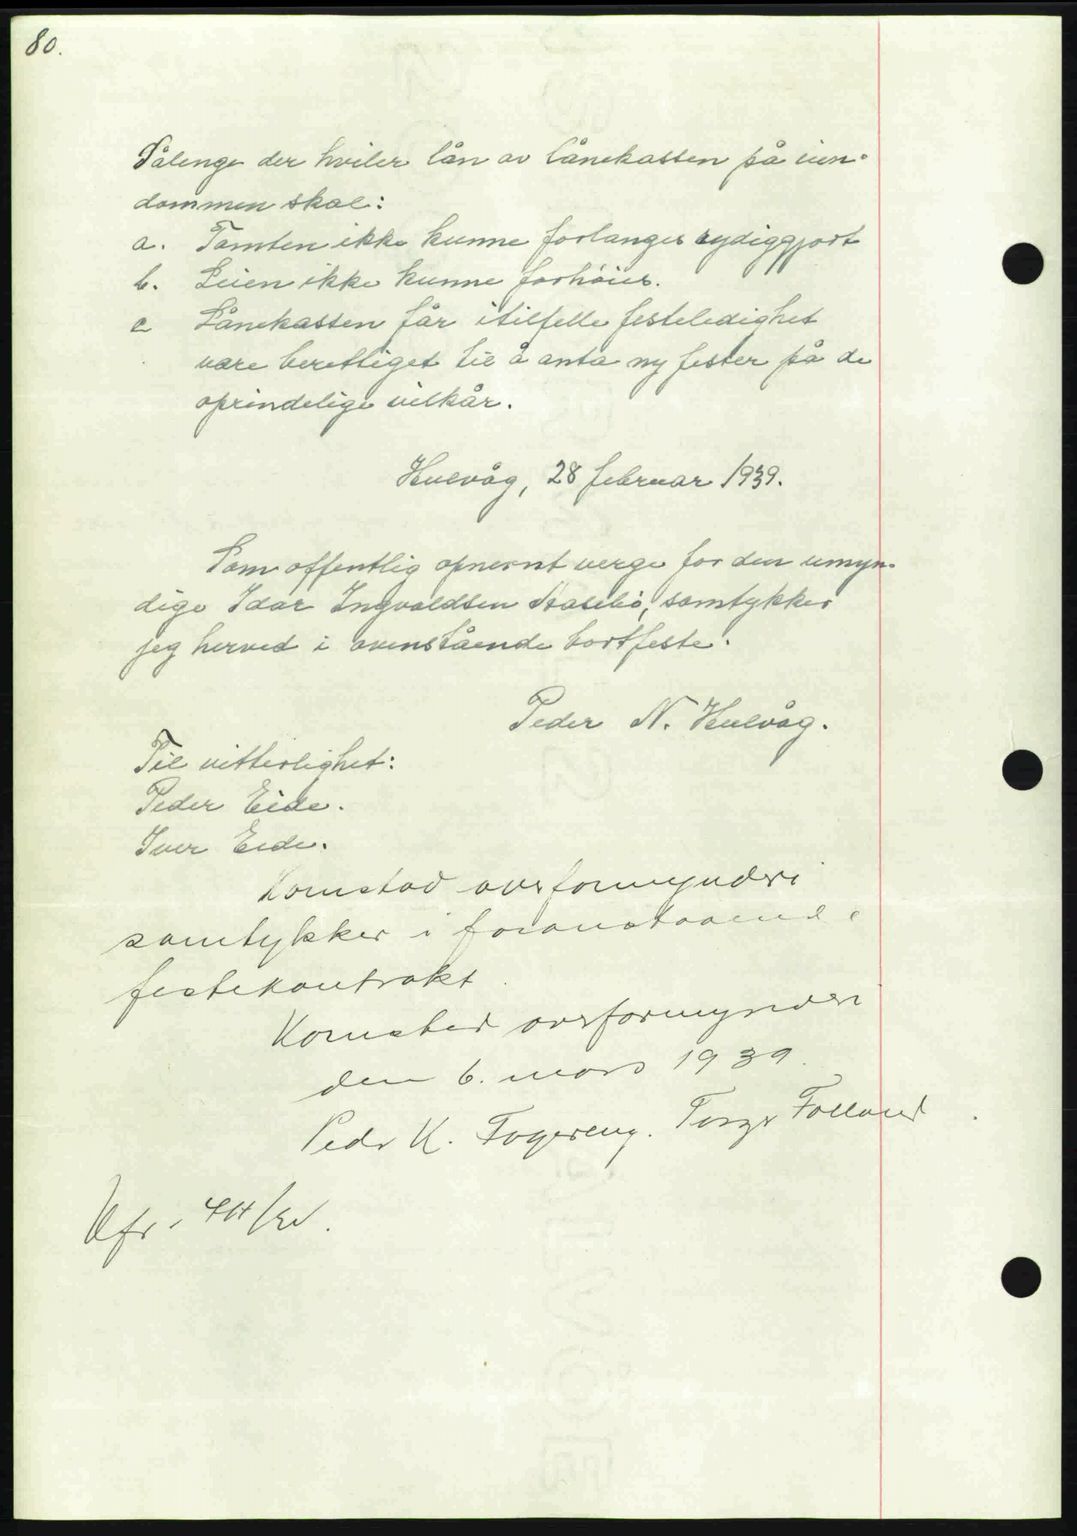 80.
Sålenge der hviler lån av lånekassen på eien-
dommen skal:
a. Tomten ikke kunne forlanges rydiggjort
b. Leien ikke kunne forhøies.
c Lånekassen får i tilfelle festeledighet
være berettiget til å anta ny fester på de
oprindelige vilkår.
Hulvåg, 28 februar 1939.
Som offentlig opnevnt verge for den umyn-
dige Idar Ingvaldsen samtykker
jeg herved i ovenstående bortfeste.
Peder N. Hulvåg.
Til vitterlighet:
Peder Eide.
Iver Eide.
Kornstad overformynderi
samtykker i foranstaaende
festekontrakt.
Kornstad overformynderi
den 6. mars 1939.
Peder K. Fagereng. Torger Folland.